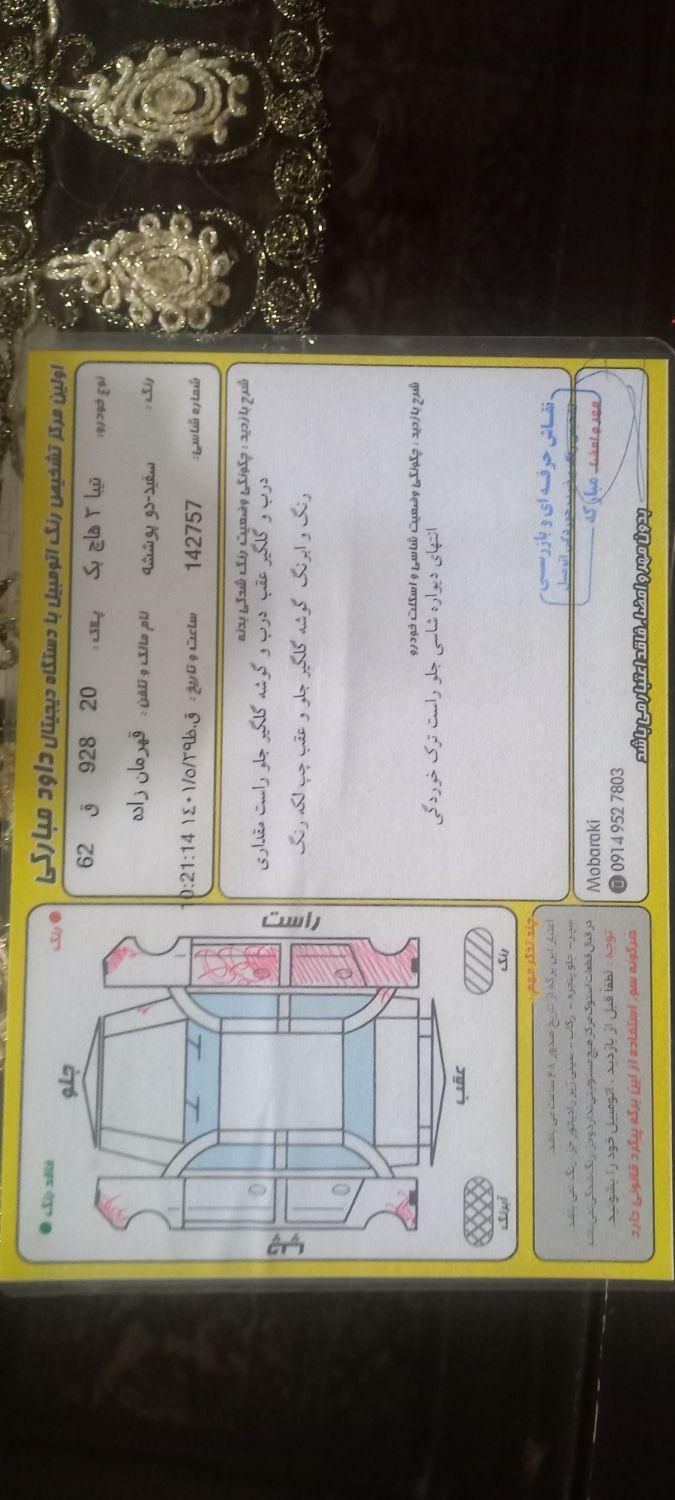 اولین مرکز تشخیص رنگ اتومبیل با دستگاه دیجیتال داود مبارکی
نوع خودرو: تیبا ۲ هاچ بک پلاک: 20 928 ق 62
رنگ: سفید-دو پوششه نام مالک و تلفن: قهرمان زاده
شماره شاسی: 142757 ساعت و تاریخ: ق.ظ ۱۴۰۱/۵/۲۹ 10:21:14
شرح بازدید: چگونگی وضعیت رنگ شدگی بدنه
درب و گلگیر عقب درب و گوشه گلگیر جلو راست مقداری
رنگ و ابرنگ گوشه گلگیر جلو و عقب چپ لکه رنگ
شرح بازدید: چگونگی وضعیت شاسی و اسکلت خودرو
انتهای دیواره شاسی جلو راست ترک خوردگی
نقاشی حرفه ای و بازرسی
مبارکه
مهر و امضا
Mobaraki
0914 952 7803
بدون مهر و امضا، فاقد اعتبار می باشد
رنگ
فاقد رنگ
جلو
راست
چپ
عقب
رنگ
آبرنگ
چند تذکر مهم
اعتبار این برگه از تاریخ صدور ۴۸ ساعت می باشد
سپر - جلو پنجره - رکاب - سینی زیر رادیاتور جز رنگ نمی باشد
در قبال قطعات استوک مرکز هیچ مسئولیتی ندارد و جز رنگ شدگی نمی باشد
توجه: لطفا قبل از بازدید، اتومبیل خود را بشوئید
هرگونه سوء استفاده از این برگه پیگرد قانونی دارد